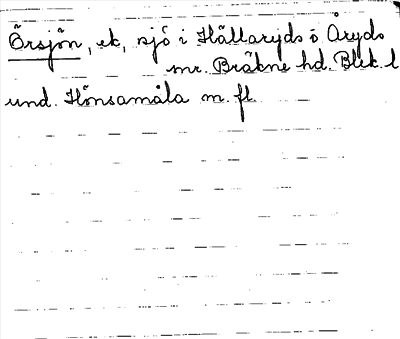 Örsjön, ek, sjö i Hällaryds o Åryds
snr. Bräkne hd. Blek. l
und. Hönsamåla m. fl.